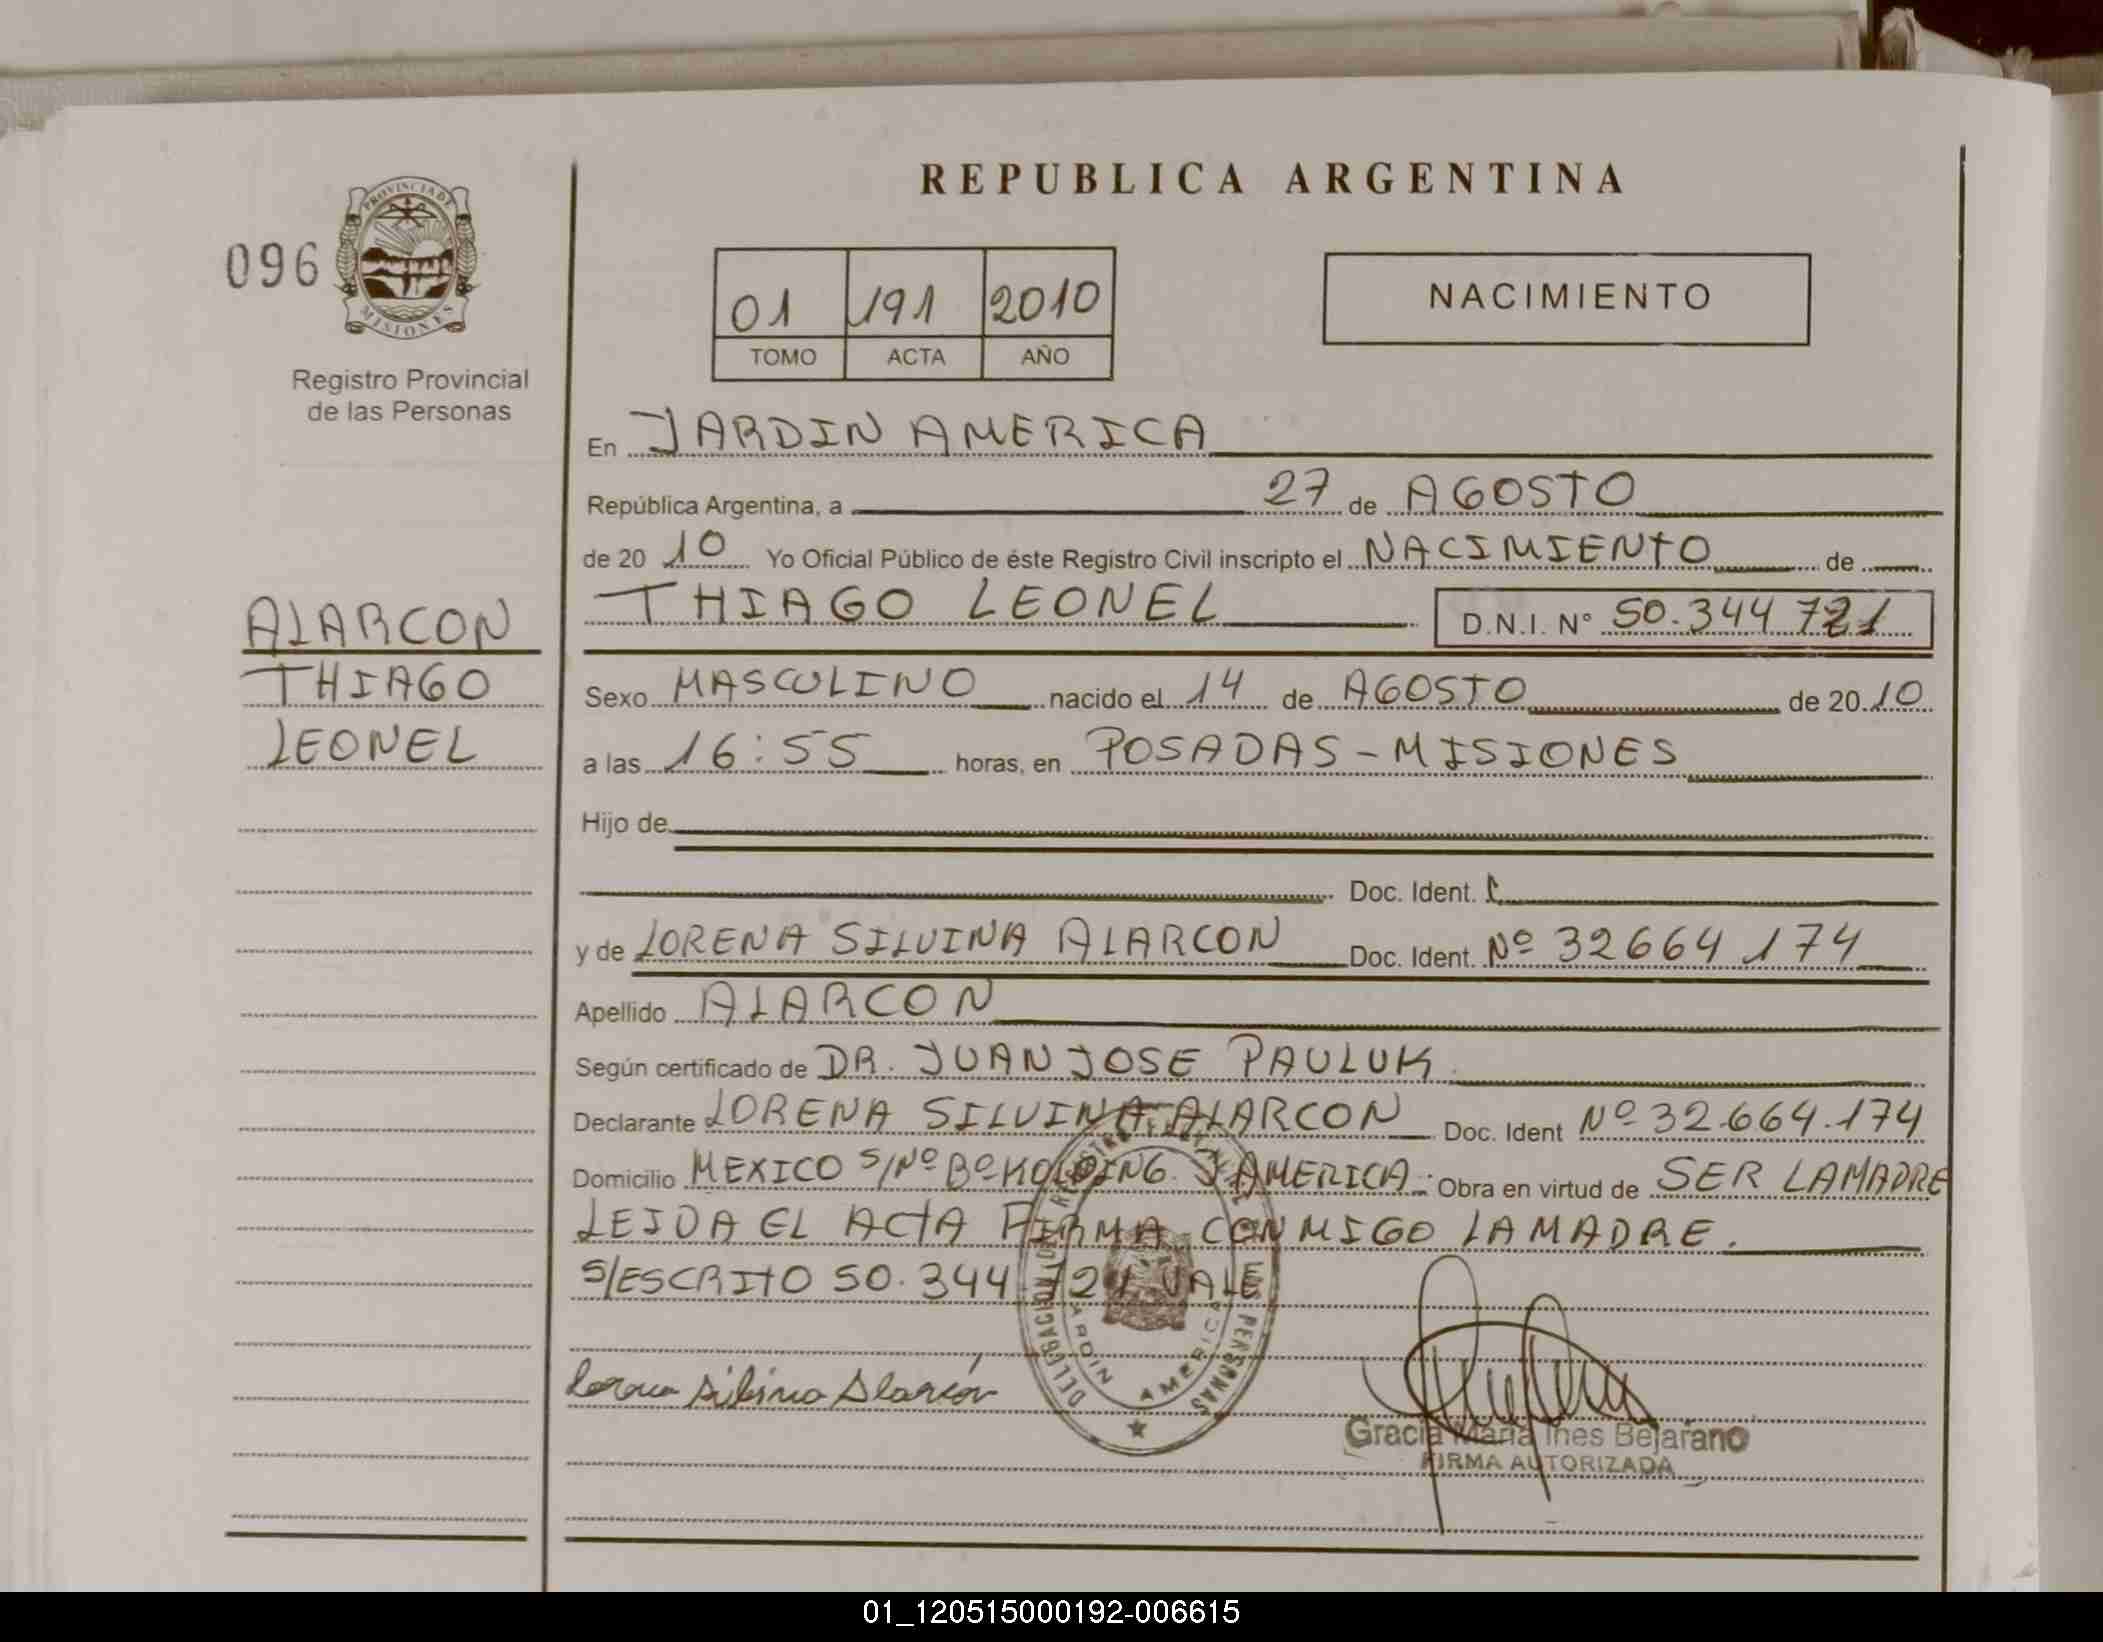 REPUBLICA ARGENTINA
096
PROVINCIA DE
MISIONES
Registro Provincial
de las Personas
01 191 2010
TOMO ACTA AÑO
NACIMIENTO
En JARDIN AMERICA
República Argentina, a 27 de AGOSTO
de 20 10 Yo Oficial Público de éste Registro Civil inscripto el NACIMIENTO de
THIAGO LEONEL D.N.I. N° 50.344 721
ALARCON
THIAGO
LEONEL
Sexo MASCULINO nacido el 14 de AGOSTO de 20 10
a las 16:55 horas, en POSADAS - MISIONES
Hijo de
Doc. Ident.
y de LORENA SILVINA ALARCON Doc. Ident. Nº 32664174
Apellido ALARCON
Según certificado de DR. JUAN JOSE PAULUK
Declarante LORENA SILVINA ALARCON Doc. Ident Nº 32.664.174
Domicilio MEXICO S/Nº Bº KOLPING. J. AMERICA. Obra en virtud de SER LA MADRE
LEIDA EL ACTA FIRMA CONMIGO LA MADRE.
S/ESCRITO 50.344 721 VALE
DELEGACION PERSONAS
JARDIN AMERICA
Lorena Silvina Alarcón
Gracia Maria Ines Bejarano
FIRMA AUTORIZADA
01_120515000192-006615